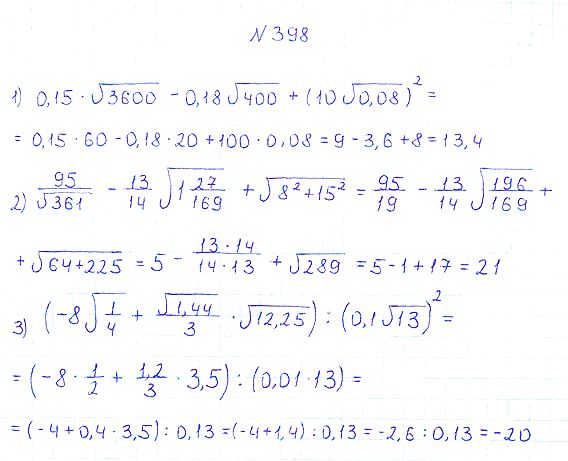 N 398
1) 0,15 · √3600 - 0,18 √400 + (10 √0,08)² =
= 0,15 · 60 - 0,18 · 20 + 100 · 0,08 = 9 - 3,6 + 8 = 13,4
2) 95/√361 - 13/14 √(1 27/169) + √(8² + 15²) = 95/19 - 13/14 √(196/169) +
+ √(64+225) = 5 - (13 · 14)/(14 · 13) + √289 = 5 - 1 + 17 = 21
3) (-8 √(1/4) + √1,44/3 · √12,25) : (0,1 √13)² =
= (-8 · 1/2 + 1,2/3 · 3,5) : (0,01 · 13) =
= (-4 + 0,4 · 3,5) : 0,13 = (-4 + 1,4) : 0,13 = -2,6 : 0,13 = -20